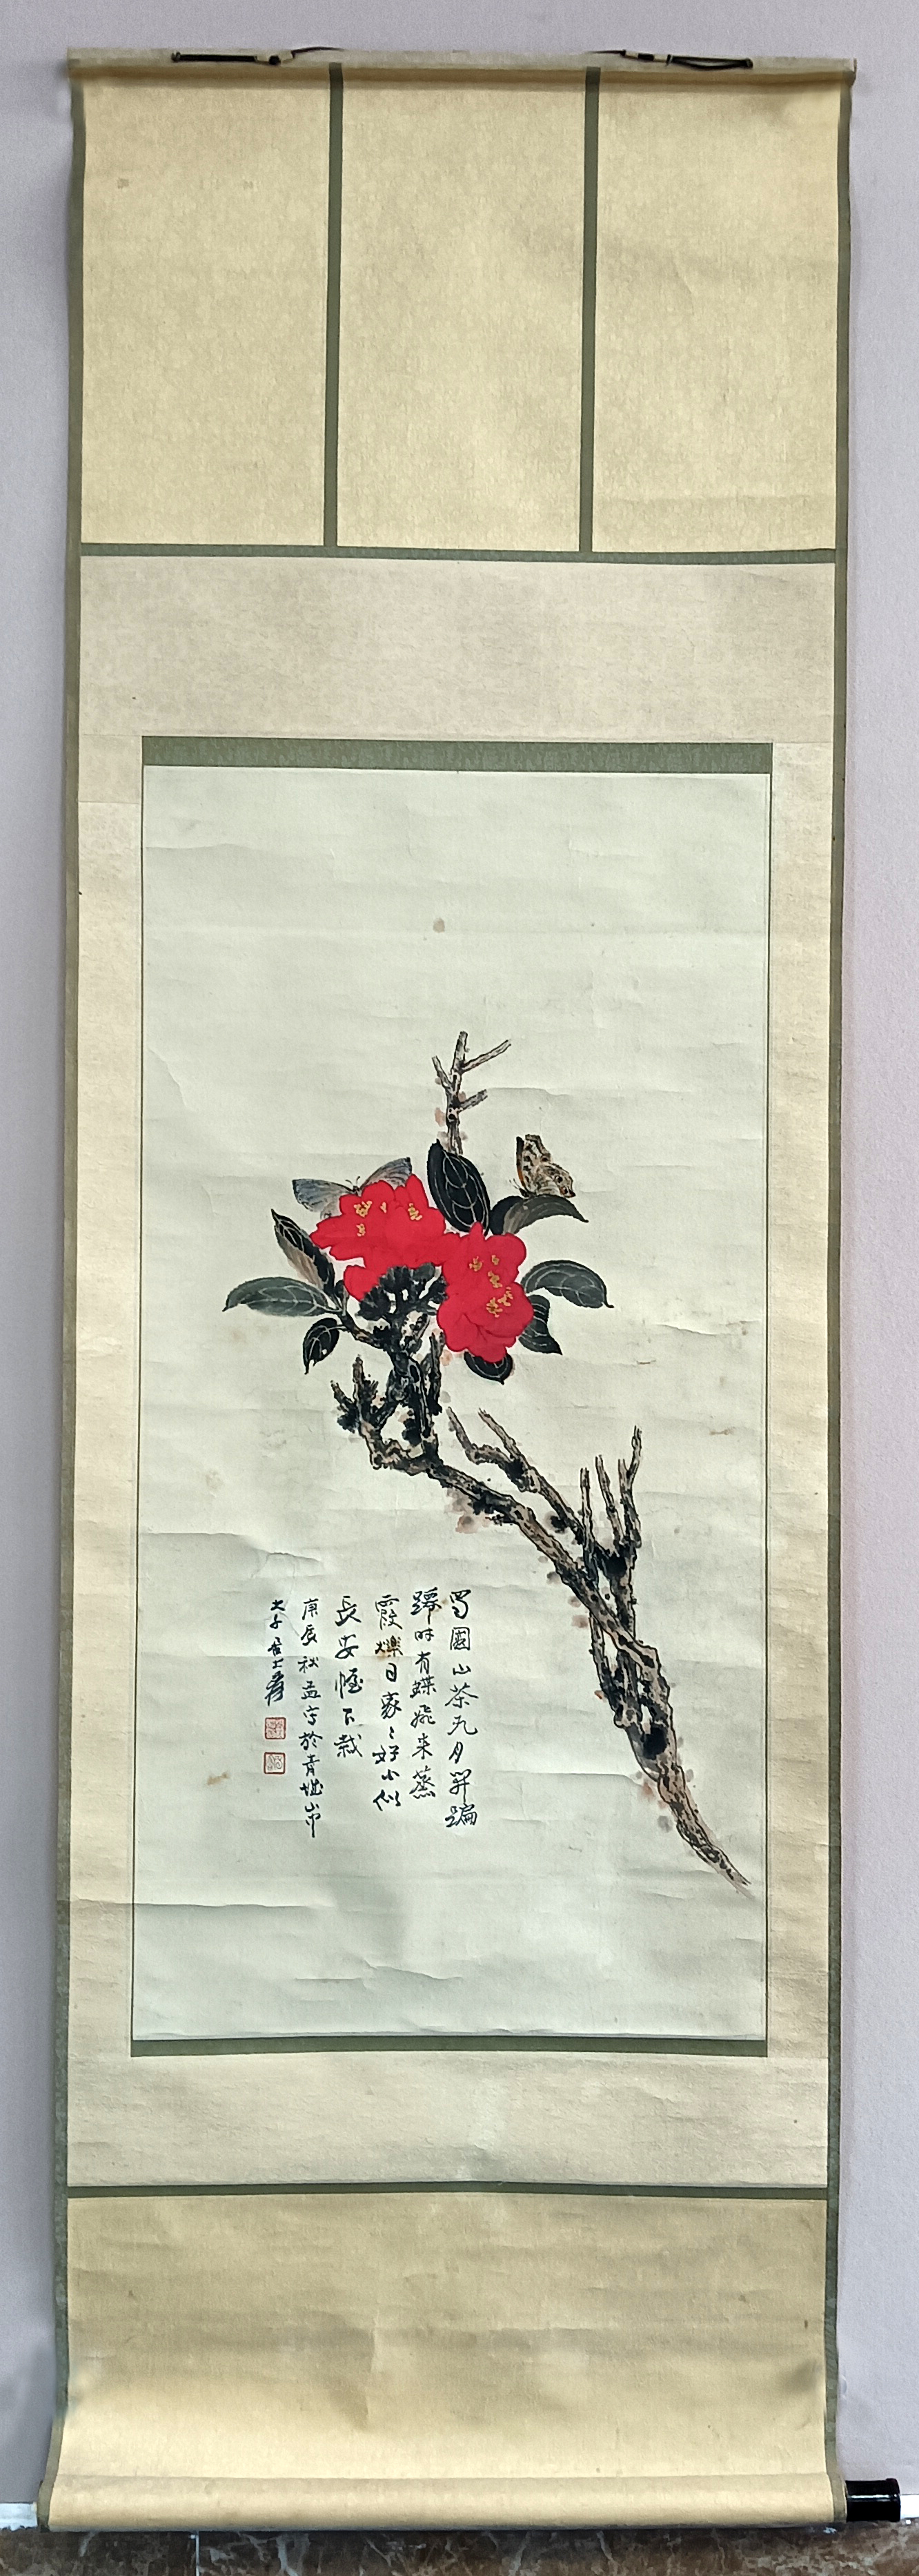 蜀國山茶九月開蹁
躚時有蝶飛來蒸
霞爍日家〻好小似
長安幄下栽
庚辰秋孟寫於青城山中
大千居士爰